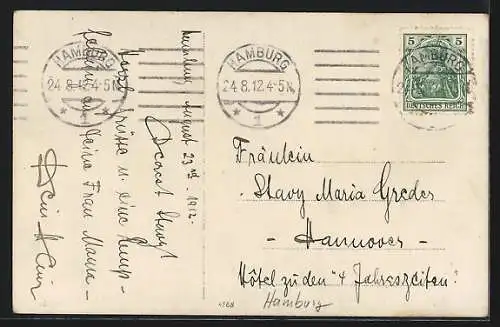 HAMBURG
24.8.12.4-5N.
* 1 *
HAMBURG
24.8.12.4-5N.
* 1 *
HAMBURG
5 5
DEUTSCHES REICH
Hamburg August 23rd 1912.
Dearest Stavy!
Herzl. Grüße u. eine Emp-
fehlung an Deine Frau Mama -
Dein
Fräulein
Stavy Maria Greder
- Hannover -
Hôtel zu den "4 Jahreszeiten"
Hamburg